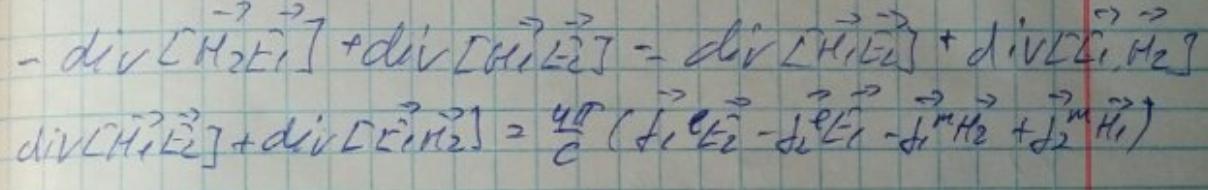 - div [H⃗₂E⃗₁] + div [H⃗₁E⃗₂] = div [H⃗₁E⃗₂] + div [E⃗₁, H⃗₂]
div [H⃗₁E⃗₂] + div [E⃗₁H⃗₂] = 4π/c (j⃗₁ᵉE⃗₂ - j⃗₂ᵉE⃗₁ - j⃗₁ᵐH⃗₂ + j⃗₂ᵐH⃗₁)